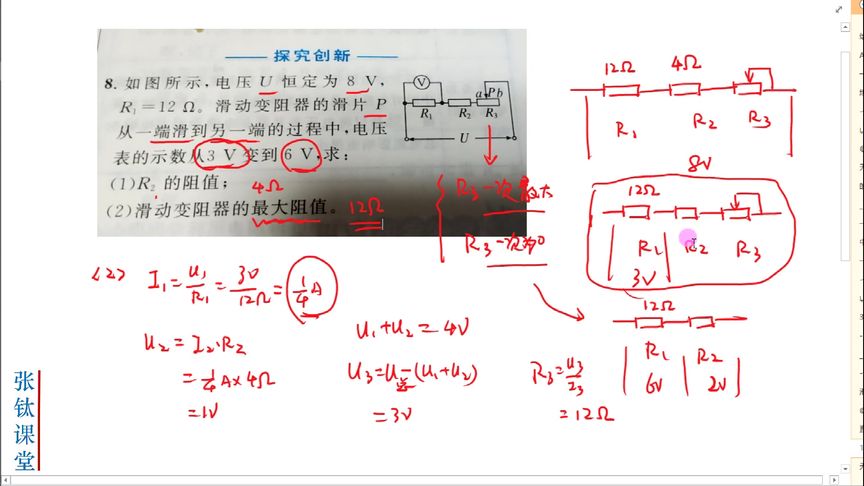 探究创新
8. 如图所示,电压 U 恒定为 8 V,
R₁=12 Ω。滑动变阻器的滑片 P
从一端滑到另一端的过程中,电压
表的示数从3 V变到6 V,求:
(1)R₂ 的阻值;
4Ω
(2)滑动变阻器的最大阻值。
12Ω
V
a P b
R₁ R₂ R₃
U
R₃一次最大
R₃一次为0
12Ω 4Ω
R₁ R₂ R₃
8V
12Ω
R₁ R₂ R₃
3V
12Ω
R₁ R₂
6V 2V
(2) I₁=U₁/R₁=3V/12Ω=1/4A
U₂=I₂·R₂
=1/4A×4Ω
=1V
U₁+U₂=4V
U₃=U总-(U₁+U₂)
=3V
R₃=U₃/I₃
=12Ω
张钛课堂